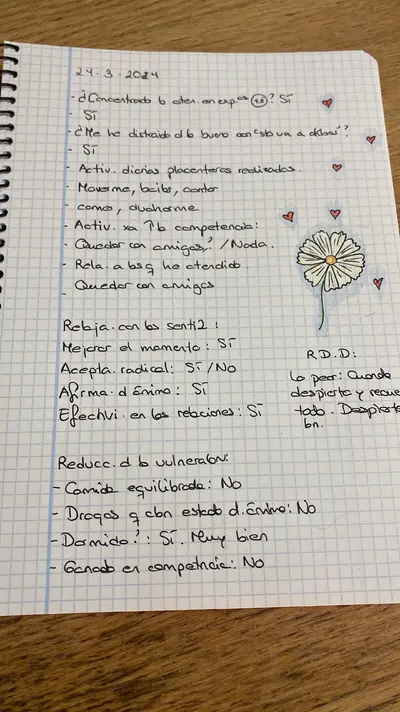 24-3-2024
- ¿Concentrado b aten. en exp.os (+s)? Sí
- Sí
- ¿Me he distraido d b bueno con "sto va a
- Sí
- Activ. diarias placenteras realizadas.
- Moverme, bailo, cantar
- como, ducharme
- Activ. xa ↑ b competencia:
- Quedar con amigos? / Nada.
- Rela. a bs q he atendido.
Quedar con amigos
-
Relaja. con bs senti2:
Mejorar el momento: Sí
Acepta. radical: Sí / No
Afirma. d Ánimo: Sí
Efectivi. en las relaciones: Sí
R.D.D:
Lo peor: Cuando
despierto y recue
todo. Despierto
bn.
Reducc. d b vulnerabn:
- Comida equilibrada: No
- Drogas q cbn estado d. Ánimo: No
- Dormido?: Sí. Muy bien
- Ganado en competencia: No